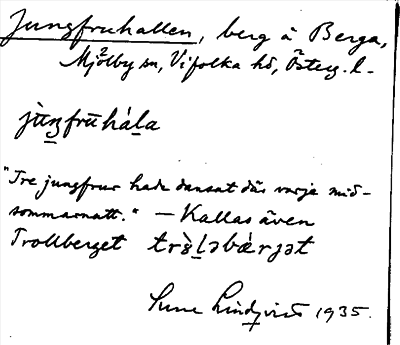 Jungfruhallen, berg å Berga,
Mjölby sn, Vifolka hd, Österg. l.
jùŋfrūhála
"Tre jungfrur hade dansat där varje mid-
sommarnatt." — Kallas även
Trollberget
Sune Lindqvist 1935.